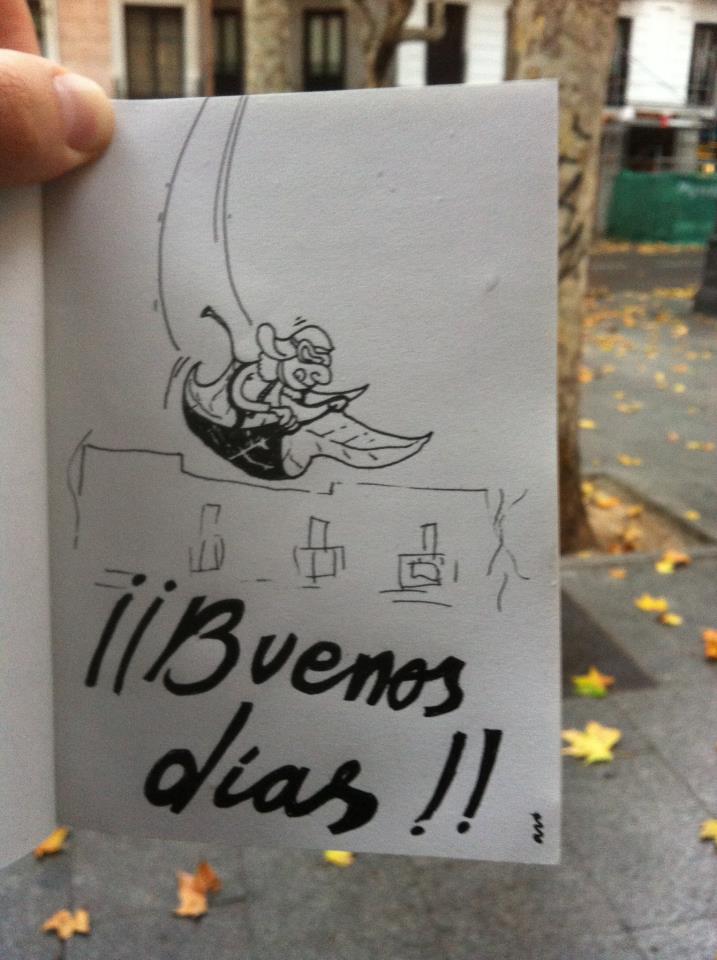 ¡¡Buenos
días!!